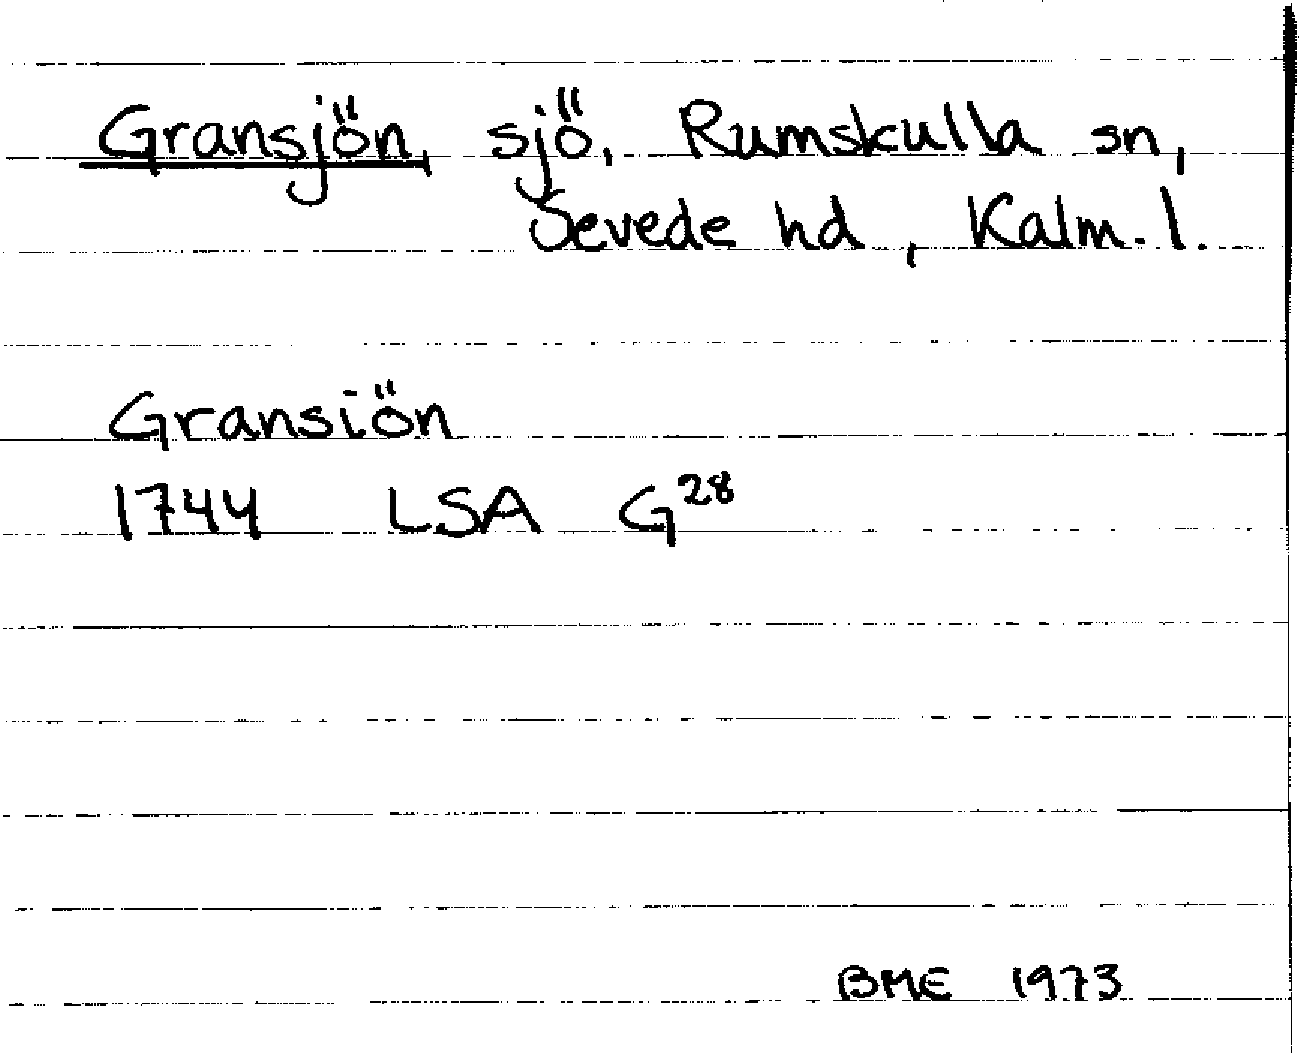 Gransjön, sjö, Rumskulla sn,
Sevede hd, Kalm. l.
Gransiön
1744 LSA G28
BME 1973